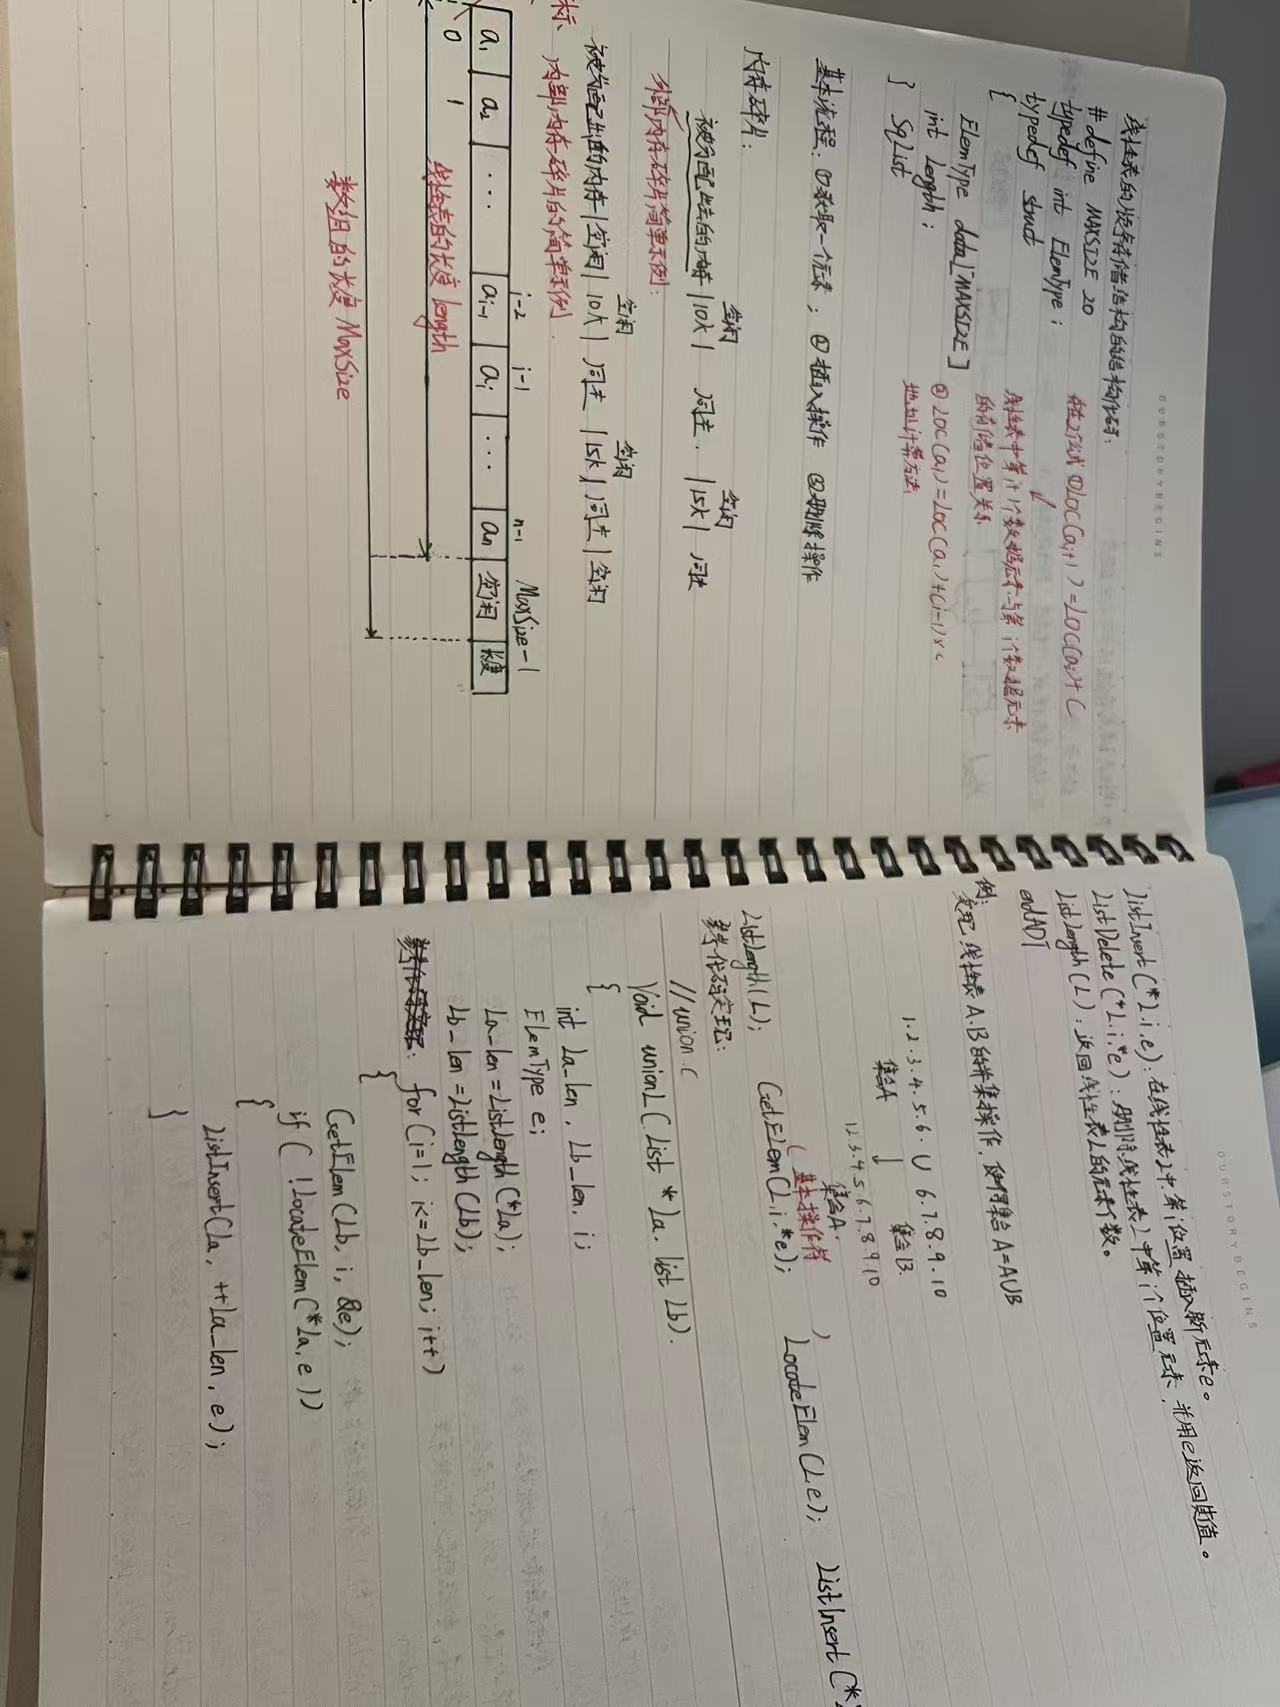 OURSTORYBEGINS
线性表的顺序存储结构的结构代码:
#define MAXSIZE 20
typedef int ElemType;
typedef struct
{
ElemType data[MAXSIZE]
int length;
} SqList
存在2个公式 ①LOC(ai+1)=LOC(ai)+C
线性表中第i+1个数据元素与第i个数据元素
的存储位置关系
②LOC(ai)=LOC(a1)+(i-1)×c
地址计算方法
基本流程: ①获取一个元素; ②插入操作 ③删除操作
内存碎片:
空闲 空闲
被分配出去的内存 |10k| 同左. |15k| 同左
外部内存碎片简单示例:
空闲 空闲
被分配出去的内存|空闲|10k|同左|15k|同左|空闲
标、内部内存碎片的简单示例.
i-2 i-1 n-1 MaxSize-1
a1 a2 ... ai-1 ai ... an 空闲 长度
0 1
线性表的长度 length
数组的长度 MaxSize
OURSTORYBEGINS
ListInsert(*L.i.e): 在线性表L中第i位置插入新元素e。
ListDelete(*L.i.*e): 删除线性表L中第i个位置元素,并用e返回其值。
ListLength(L): 返回线性表L的元素个数。
endADT
例:
实现线性表A.B的并集操作,使得集合A=AUB
1.2.3.4.5.6. U 6.7.8.9.10
集合A ↓ 集合B.
1.2.3.4.5.6.7.8.9.10
集合A.
(基本操作符 )
ListLength(L); GetELem(L.i.*e); LocateElem(L.e); ListInsert(*
参考代码实现:
//union.c
Void unionL(List *La. list Lb).
{
int La_len, Lb_len, i;
ElemType e;
La_len=ListLength(*La);
Lb_len=ListLength(Lb);
参考代码实现: for(i=1; i<=Lb_len; i++)
{
GetElem(Lb, i, &e);
if( !LocateElem(*La, e))
{
ListInsert(La, ++La_len, e);
}